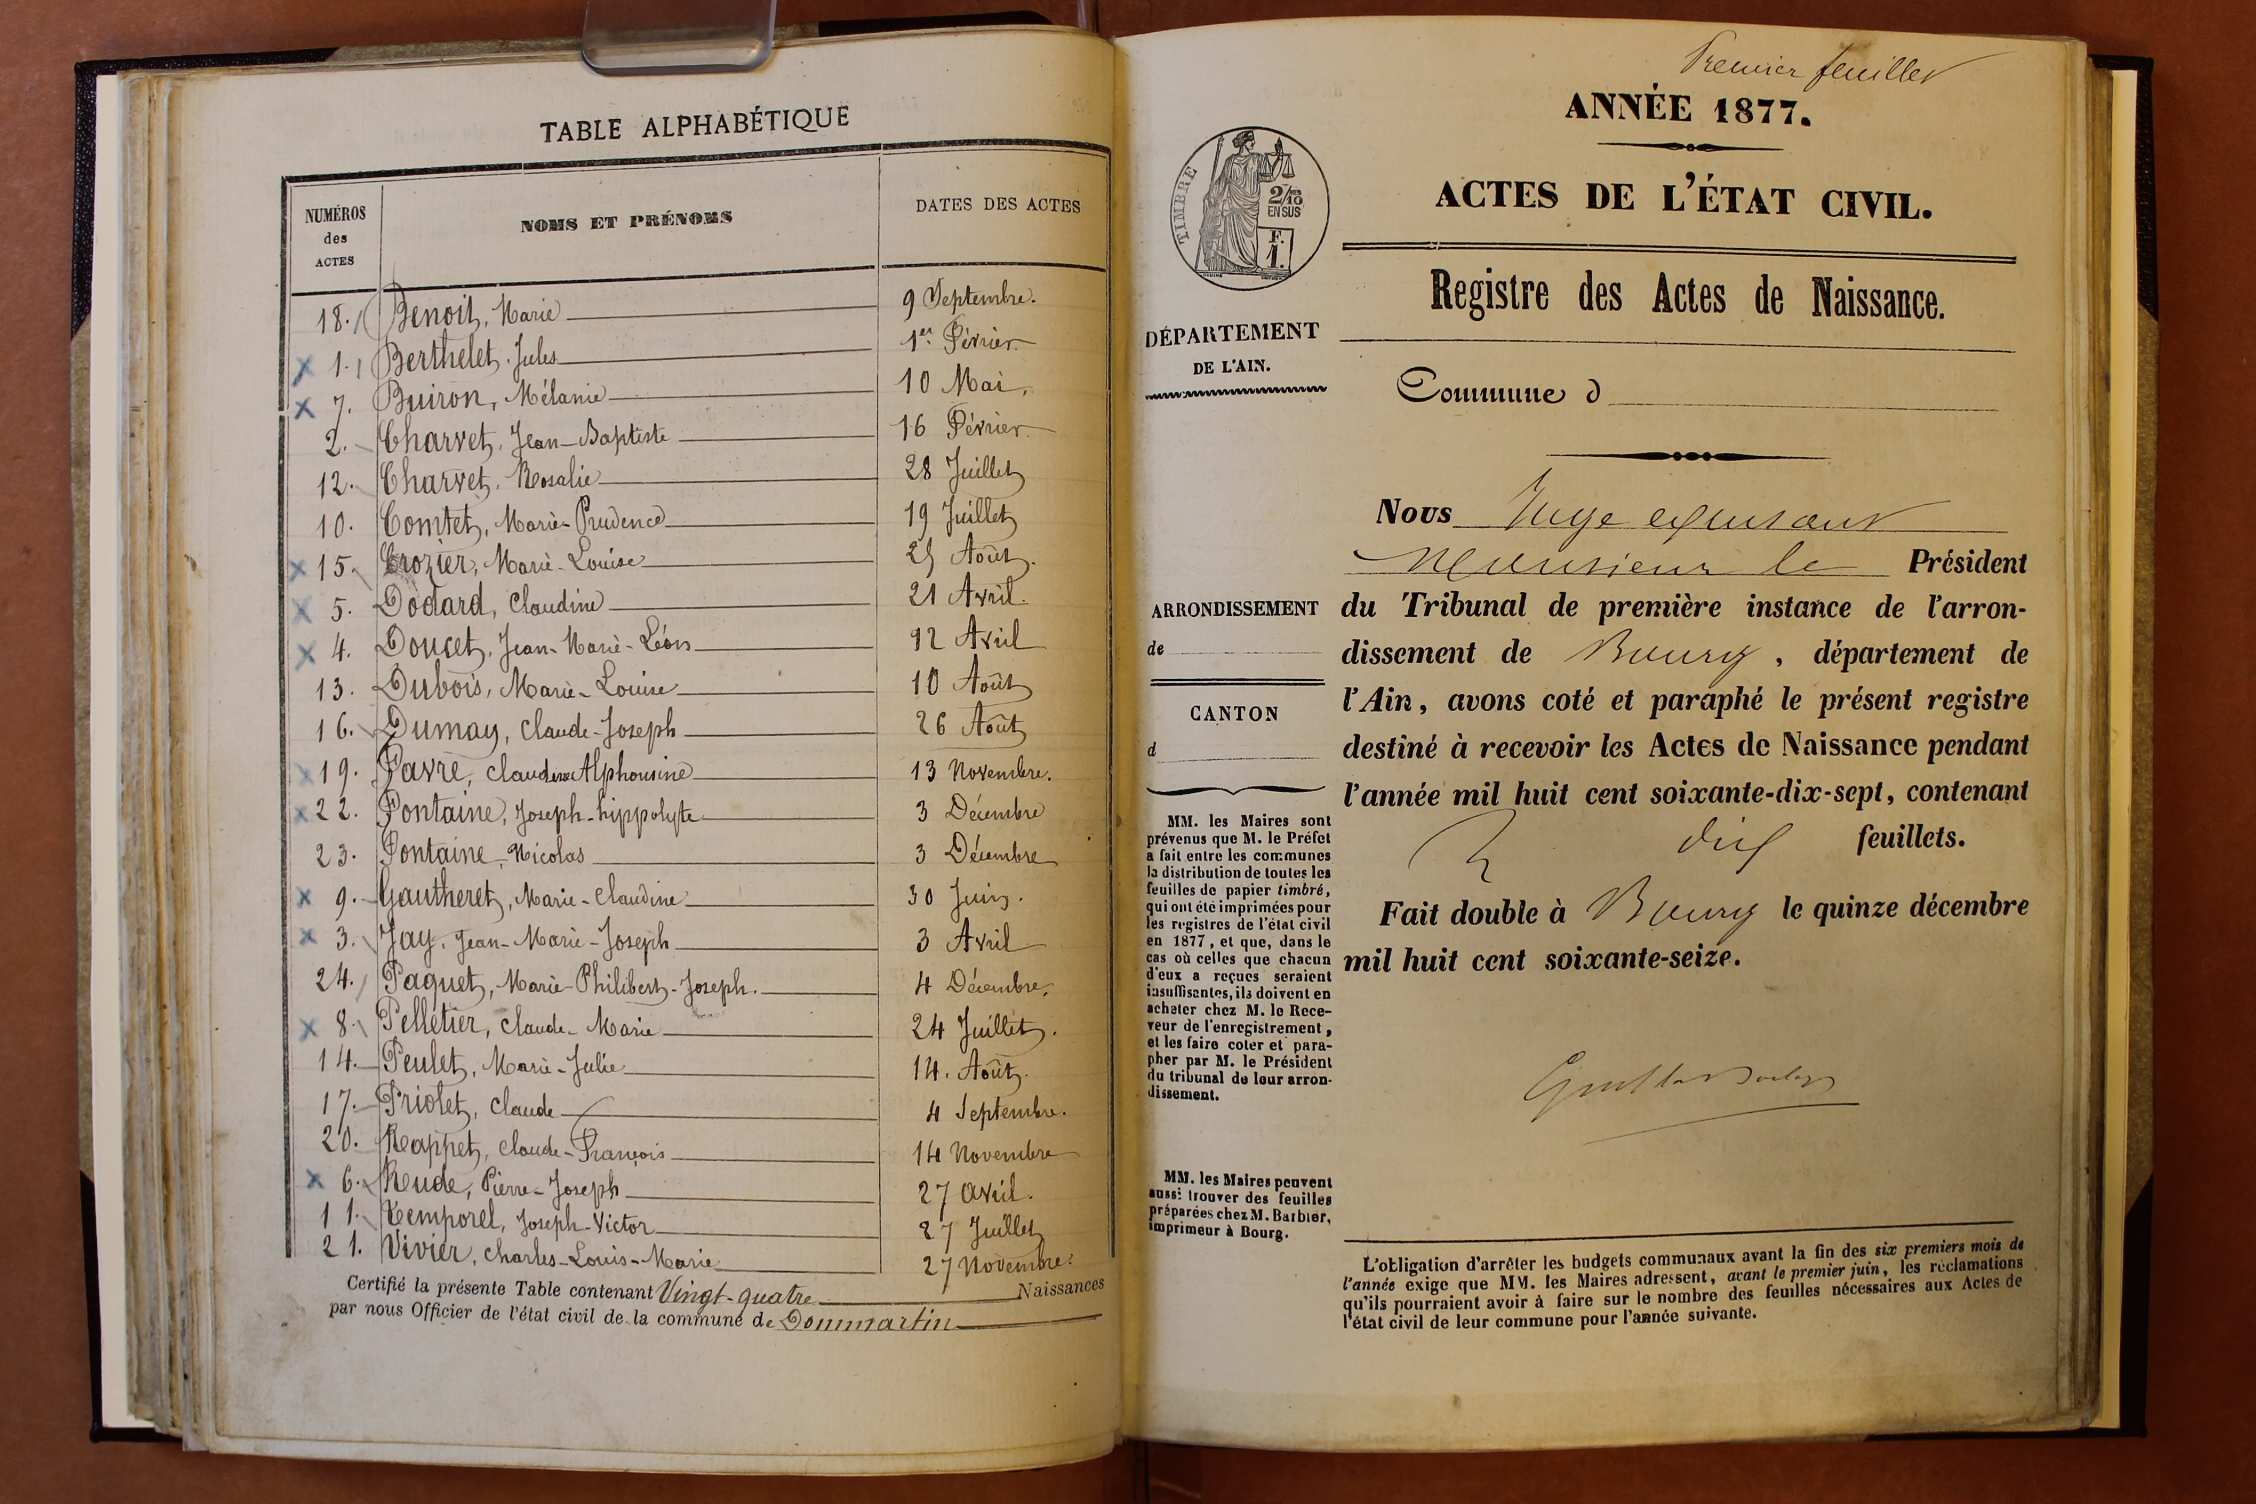 TABLE ALPHABÉTIQUE
NUMÉROS des ACTES NOMS ET PRÉNOMS DATES DES ACTES
18. Benoit, Marie 9 Septembre.
1. Berthelet, Jules 1er Février
7. Buiron, Mélanie 10 Mai,
2. Charvet, Jean-Baptiste 16 Février
12. Charvet, Rosalie 28 Juillet
10. Comtet, Marie-Prudence 19 Juillet
15. Crozier, Marie-Louise 25 Août.
5. Dodard, Claudine 21 Avril.
4. Doucet, Jean-Marie-Léon 12 Avril
13. Dubois, Marie-Louise 10 Août
16. Dumay, Claude-Joseph 26 Août
19. Favre, Claudine Alphonsine 13 Novembre.
22. Fontaine, Joseph-hippolyte 3 Décembre
23. Fontaine, Nicolas 3 Décembre
9. Gautheret, Marie-Claudine 30 Juin.
3. Jay, Jean-Marie-Joseph 3 Avril
24. Paquet, Marie-Philibert-Joseph. 4 Décembre,
8. Pelletier, Claude-Marie 24 Juillet.
14. Peulet, Marie-Julie 14. Août.
17. Priolet, Claude 4 Septembre.
20. Rappet, Claude-François 14 Novembre
6. Rude, Pierre-Joseph 27 avril.
11. Temporel, Joseph-Victor 27 Juillet
21. Vivier, Charles-Louis-Marie 27 Novembre.
Certifié la présente Table contenant Vingt-quatre Naissances
par nous Officier de l'état civil de la commune de Dommartin
Premier feuillet
ANNÉE 1877.
TIMBRE
2/10 EN SUS
F. 1.
ACTES DE L'ÉTAT CIVIL.
Registre des Actes de Naissance.
DÉPARTEMENT
DE L'AIN.
Commune d
ARRONDISSEMENT
de
CANTON
d
MM. les Maires sont
prévenus que M. le Préfet
a fait entre les communes
la distribution de toutes les
feuilles de papier timbré,
qui ont été imprimées pour
les registres de l'état civil
en 1877, et que, dans le
cas où celles que chacun
d'eux a reçues seraient
insuffisantes, ils doivent en
acheter chez M. le Rece-
veur de l'enregistrement,
et les faire coter et para-
pher par M. le Président
du tribunal de leur arron-
dissement.
MM. les Maires peuvent
aussi trouver des feuilles
préparées chez M. Barbier,
imprimeur à Bourg.
Nous Juge
Monsieur le Président
du Tribunal de première instance de l'arron-
dissement de Bourg, département de
l'Ain, avons coté et paraphé le présent registre
destiné à recevoir les Actes de Naissance pendant
l'année mil huit cent soixante-dix-sept, contenant
dix feuillets.
Fait double à Bourg le quinze décembre
mil huit cent soixante-seize.
L'obligation d'arrêter les budgets communaux avant la fin des six premiers mois de
l'année exige que MM. les Maires adressent, avant le premier juin, les réclamations
qu'ils pourraient avoir à faire sur le nombre des feuilles nécessaires aux Actes de
l'état civil de leur commune pour l'année suivante.